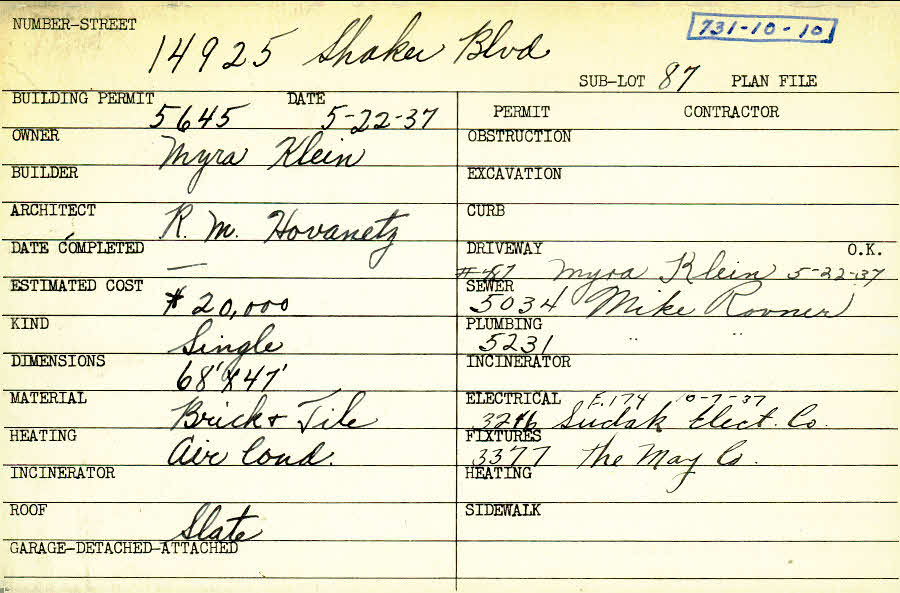 NUMBER-STREET
14925 Shaker Blvd
731-10-10
SUB-LOT 87 PLAN FILE
BUILDING PERMIT 5645 DATE 5-22-37
OWNER Myra Klein
BUILDER
ARCHITECT R. M. Hovanetz
DATE COMPLETED —
ESTIMATED COST $20,000
KIND Single
DIMENSIONS 68'X47'
MATERIAL Brick & Tile
HEATING Air Cond.
INCINERATOR
ROOF Slate
GARAGE-DETACHED-ATTACHED
PERMIT CONTRACTOR
OBSTRUCTION
EXCAVATION
CURB
DRIVEWAY O.K.
#-87 Myra Klein 5-22-37
SEWER
5034 Mike Rovner
PLUMBING
5231 " "
INCINERATOR
ELECTRICAL F.174 10-7-37
Sudak Elect. Co.
FIXTURES
3377 The May Co.
HEATING
SIDEWALK